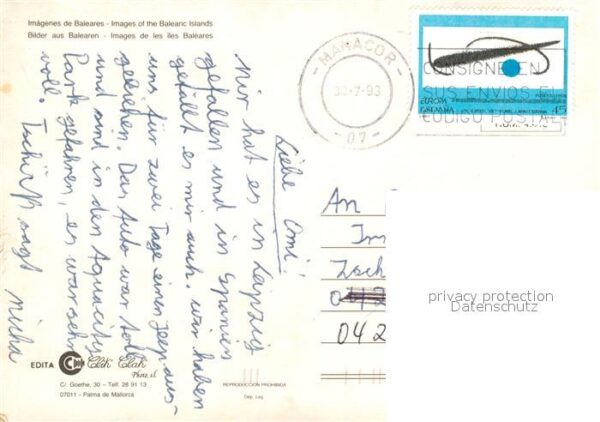 Imágenes de Baleares - Images of the Balearic Islands
Bilder aus Balearen - Images de les îles Baléares
- MANACOR -
30-7-93
- 07 -
CONSIGNE EN
SUS ENVIOS EL
CODIGO POSTAL
EUROPA
ESPAÑA
45
Liebe Omi!
Mir hat es in Leipzig
gefallen und in Spanien
gefällt es mir auch. Wir haben
uns für zwei Tage einen Jeep aus-
geliehen. Das Auto war toll
und sind in den Aquacity
Park gefahren, es war sehr
voll. Tschüß sagt Micha
An
Im
Zsch
042
privacy protection
Datenschutz
EDITA
Clik Clak
Photo, sl.
C/. Goethe, 30 - Telf. 28 91 13
07011 - Palma de Mallorca
REPRODUCCION PROHIBIDA
Dep. Leg.